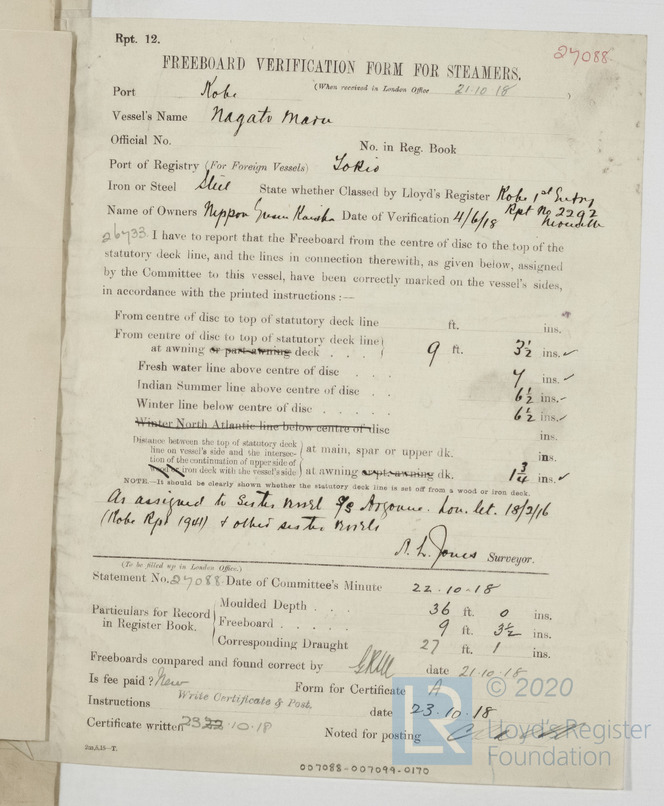 Rpt. 12.
27088
FREEBOARD VERIFICATION FORM FOR STEAMERS.
Port Kobe (When received in London Office 21.10.18 )
Vessel's Name Nagato Maru
Official No. No. in Reg. Book
Port of Registry (For Foreign Vessels) Tokio
Iron or Steel Steel State whether Classed by Lloyd's Register Kobe 1st Entry
Rpt No 2292
Name of Owners Nippon Yusen Kaisha Date of Verification 4/6/18
26733 I have to report that the Freeboard from the centre of disc to the top of the
statutory deck line, and the lines in connection therewith, as given below, assigned
by the Committee to this vessel, have been correctly marked on the vessel's sides,
in accordance with the printed instructions :—
From centre of disc to top of statutory deck line ft. ins.
From centre of disc to top of statutory deck line
at awning or part awning deck . . . 9 ft. 3½ ins. ✓
Fresh water line above centre of disc . . 7 ins. ✓
Indian Summer line above centre of disc . . 6½ ins. ✓
Winter line below centre of disc . . . . . 6½ ins. ✓
Winter North Atlantic line below centre of disc ins.
Distance between the top of statutory deck
line on vessel's side and the intersec- at main, spar or upper dk. ins.
tion of the continuation of upper side of
wood or iron deck with the vessel's side at awning or pt. awning dk. 1¾ ins. ✓
NOTE.—It should be clearly shown whether the statutory deck line is set off from a wood or iron deck.
As assigned to Sister vessel S/S Argonne. Lon. let. 18/2/16
(Kobe Rpt 1941) & other sister vessels
A. L. Jones Surveyor.
(To be filled up in London Office.)
Statement No. 27088 Date of Committee's Minute 22.10.18
Particulars for Record in Register Book.
Moulded Depth . . . 36 ft. 0 ins.
Freeboard . . . . . 9 ft. 3½ ins.
Corresponding Draught 27 ft. 1 ins.
Freeboards compared and found correct by date 21.10.18
Is fee paid? New Form for Certificate A
Instructions Write Certificate & Post. date 23.10.18
Certificate written 23 22.10.18 Noted for posting
Jun,6,15—T.
007088-007099-0170
LR
© 2020
Lloyd's Register
Foundation